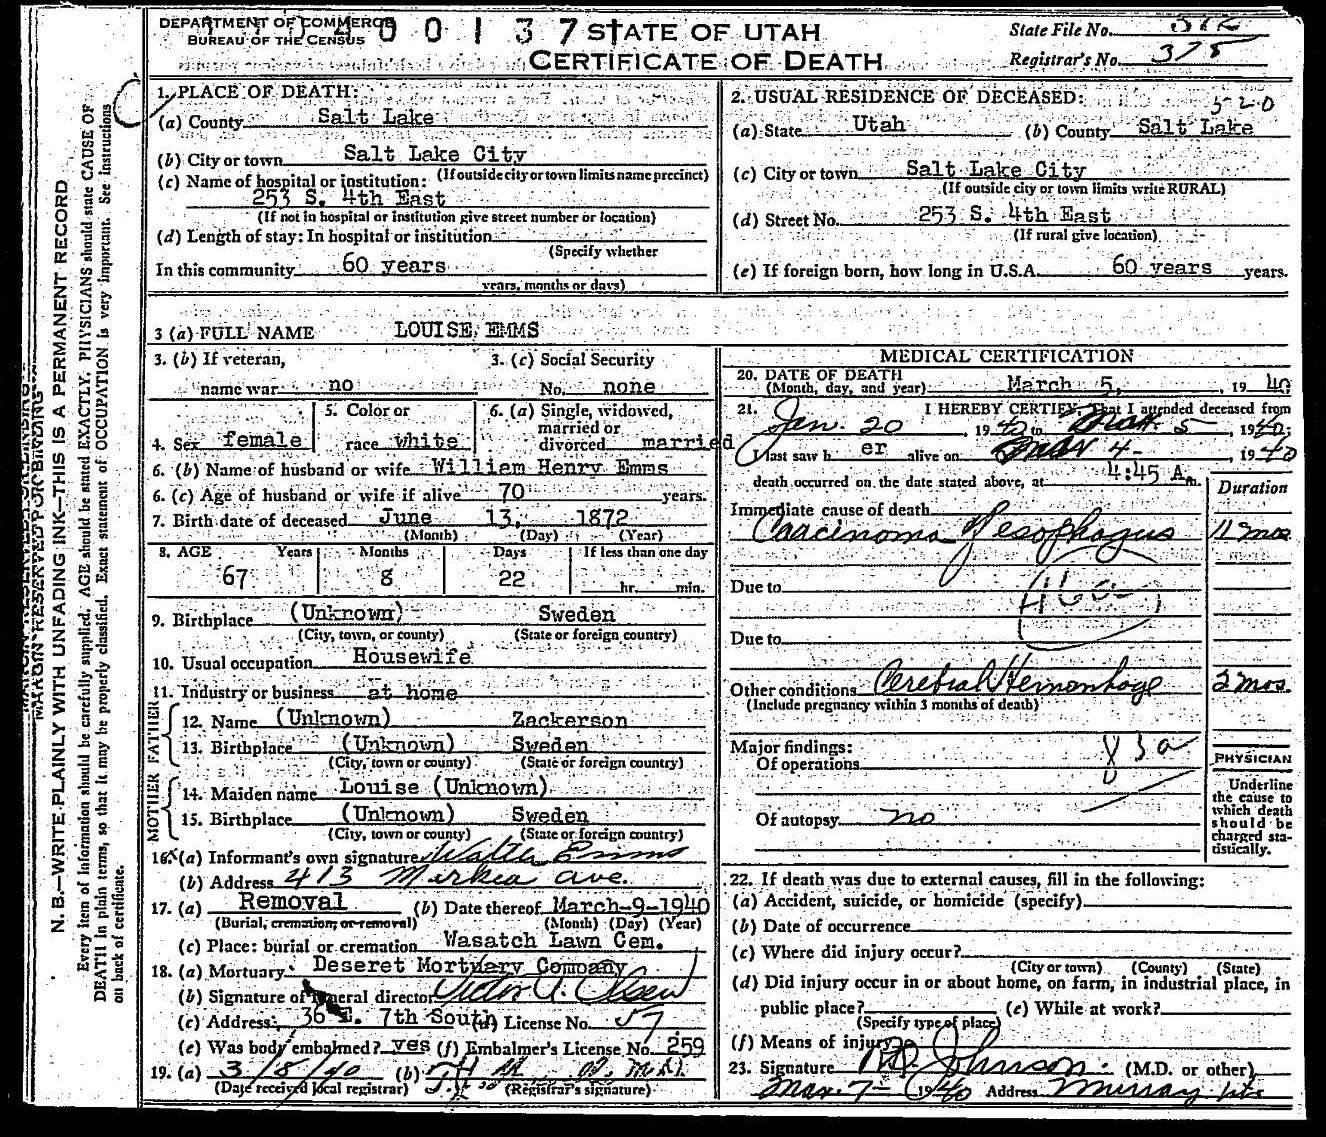 DEPARTMENT OF COMMERCE
BUREAU OF THE CENSUS
4 0 0 1 3 7
STATE OF UTAH
CERTIFICATE OF DEATH
State File No.
Registrar's No. 375
N. B.—WRITE PLAINLY WITH UNFADING INK—THIS IS A PERMANENT RECORD
Every item of information should be carefully supplied. AGE should be stated EXACTLY. PHYSICIANS should state CAUSE OF
DEATH in plain terms, so that it may be properly classified. Exact statement of OCCUPATION is very important. See instructions
on back of certificate.
MARGIN RESERVED FOR BINDING
1. PLACE OF DEATH:
(a) County Salt Lake
(b) City or town Salt Lake City
(If outside city or town limits name precinct)
(c) Name of hospital or institution:
253 S. 4th East
(If not in hospital or institution give street number or location)
(d) Length of stay: In hospital or institution
(Specify whether
In this community 60 years
years, months or days)
2. USUAL RESIDENCE OF DECEASED: 520
(a) State Utah (b) County Salt Lake
(c) City or town Salt Lake City
(If outside city or town limits write RURAL)
(d) Street No. 253 S. 4th East
(If rural give location)
(e) If foreign born, how long in U.S.A. 60 years years.
3 (a) FULL NAME LOUISE EMMS
3. (b) If veteran,
name war no
3. (c) Social Security
No. none
4. Sex female
5. Color or
race white
6. (a) Single, widowed,
married or
divorced married
6. (b) Name of husband or wife William Henry Emms
6. (c) Age of husband or wife if alive 70 years.
7. Birth date of deceased June 13, 1872
(Month) (Day) (Year)
8. AGE Years Months Days If less than one day
67 8 22 hr. min.
9. Birthplace (Unknown) Sweden
(City, town, or county) (State or foreign country)
10. Usual occupation Housewife
11. Industry or business at home
FATHER
12. Name (Unknown) Zackerson
13. Birthplace (Unknown) Sweden
(City, town or county) (State or foreign country)
MOTHER
14. Maiden name Louise (Unknown)
15. Birthplace (Unknown) Sweden
(City, town or county) (State or foreign country)
16. (a) Informant's own signature Walter Emms
(b) Address 413 Mirkea ave.
17. (a) Removal (b) Date thereof March-9-1940
(Burial, cremation, or removal) (Month) (Day) (Year)
(c) Place: burial or cremation Wasatch Lawn Cem.
18. (a) Mortuary Deseret Mortuary Company
(b) Signature of funeral director Victor A. Olsen
(c) Address: 36 E. 7th South (d) License No. 57
(e) Was body embalmed? yes (f) Embalmer's License No. 259
19. (a) 3/8/40 (b)
(Date received local registrar) (Registrar's signature)
MEDICAL CERTIFICATION
20. DATE OF DEATH
(Month, day, and year) March 5, 1940
21. I HEREBY CERTIFY, That I attended deceased from
Jan. 20, 1940 to Mar. 5, 1940;
I last saw her alive on Mar 4-, 1940
death occurred on the date stated above, at 4:45 A. m.
Duration
Immediate cause of death
Carcinoma of esophagus 11 mos
Due to 46a
Due to
Other conditions Cerebral Hemorrhage 2 mos.
(Include pregnancy within 3 months of death)
Major findings: 83a
Of operations
Of autopsy no
PHYSICIAN
Underline
the cause to
which death
should be
charged sta-
tistically.
22. If death was due to external causes, fill in the following:
(a) Accident, suicide, or homicide (specify)
(b) Date of occurrence
(c) Where did injury occur?
(City or town) (County) (State)
(d) Did injury occur in or about home, on farm, in industrial place, in
public place? (e) While at work?
(Specify type of place)
(f) Means of injury
23. Signature Johnson. (M.D. or other)
Mar. 7- 1940 Address Murray Ut.